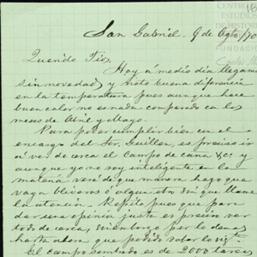 San Gabriel, 9 de Agto/70
Querido Tio,
Hoy á medio día llegamos
sin novedad, y noto buena diferencia
en la temperatura pues aunque hace
buen calor no es nada comparado con los
meses de Abril y Mayo.
Para poder cumplir bien en el
encargo del Sor. Guillen, es preciso ir
á ver de cerca el campo de caña &c. y
aunque yo no soy inteligente en la
materia veré de que manera hago que
vaya Oliveros ó algun otro
la atencion. Repito pues que para
dar una opinion justa es preciso ver
todo de cerca, sin embargo por lo demas
hasta ahora que podido saber lo sigte.
El campo sembrado es de 2000 tareas